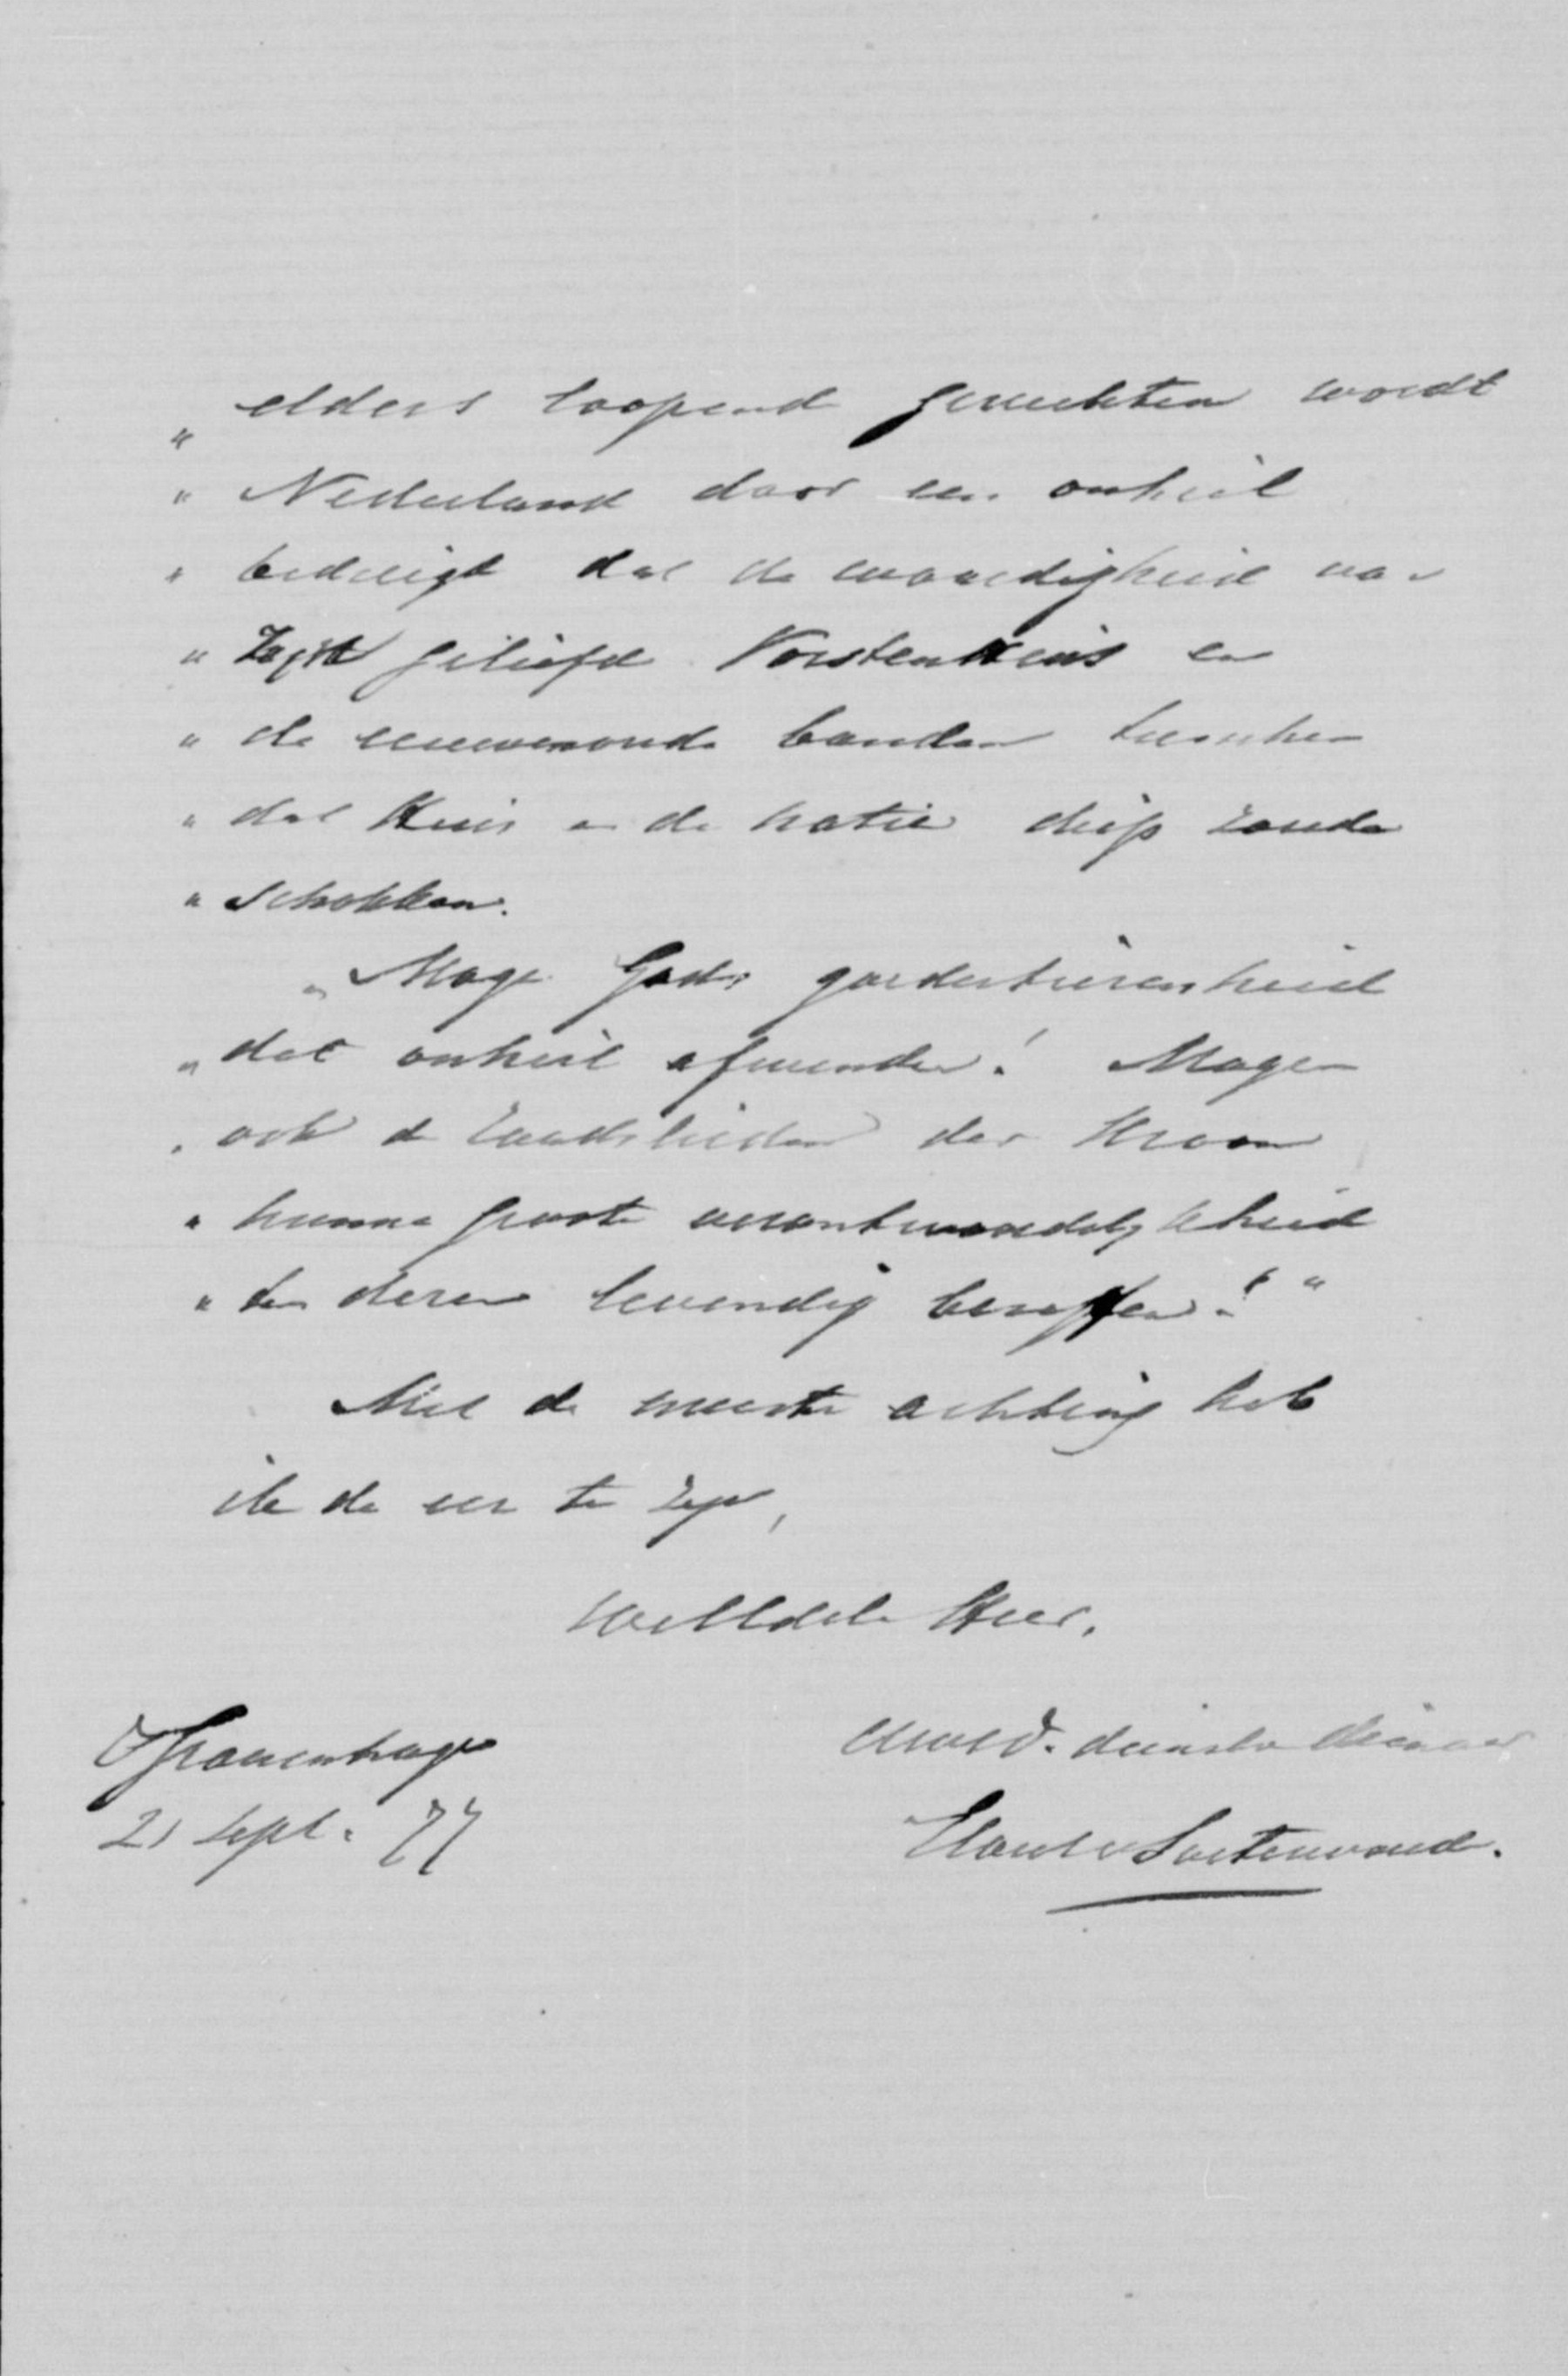 „ elders loopende geruchten wordt
„ Nederland door een onheil
„ bedreigd dat de waardigheid van
„ Zijn geliefd Vorstenhuis en
„ de eeuwenoude banden tusschen
„ dat Huis en de natie diep zoude
„ schokken.
„ Moge Gods goedertierenheid
„ dat onheil afwenden! Mogen
„ ook de raadslieden der Kroon
„ hunne groote verantwoordelijkheid
„ ten dezen levendig beseffen!"
Met de meeste achting heb
ik de eer te zijn,
WelEdele Heer,
UwEd. dienstw dienaar
Elout v Soeterwoude.
s'Gravenhage
21 Sept. 77